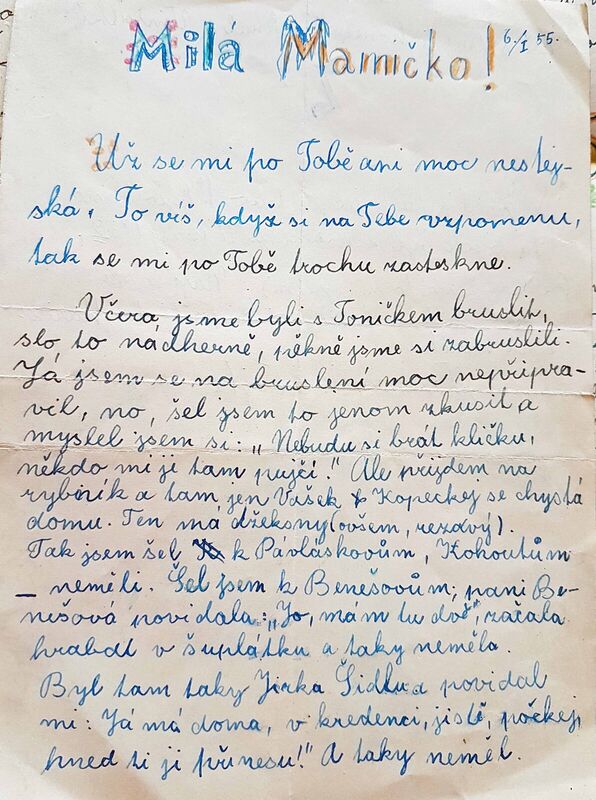 Milá Mamičko! 6./I 55.
Už se mi po Tobě ani moc nestej-
ská. To víš, když si na Tebe vzpomenu,
tak se mi po Tobě trochu zasteskne.
Včera jsme byli s Toničkem bruslit,
slo to nádherně, pěkně jsme si zabruslili.
Já jsem se na bruslení moc nepřipra-
vil, no, šel jsem to jenom zkusit a
myslel jsem si: „Nebudu si brát kličku,
někdo mi ji tam pujčí." Ale přijdem na
rybník a tam jen Vašek Kopeckej se chystá
domu. Ten má džeksny (ovšem, rezavý).
Tak jsem šel k Pávláskovům, Kohoutům
– neměli. Šel jsem k Benešovům; pani Be-
nešová povidala: „Jo, mám tu dvě", začala
hrabat v šuplátku a taky neměla.
Byl tam taky Jirka Šidlu a povidal
mi: Já má doma, v kredenci, jistě, počkej,
hned ti ji přinesu!" A taky neměl.